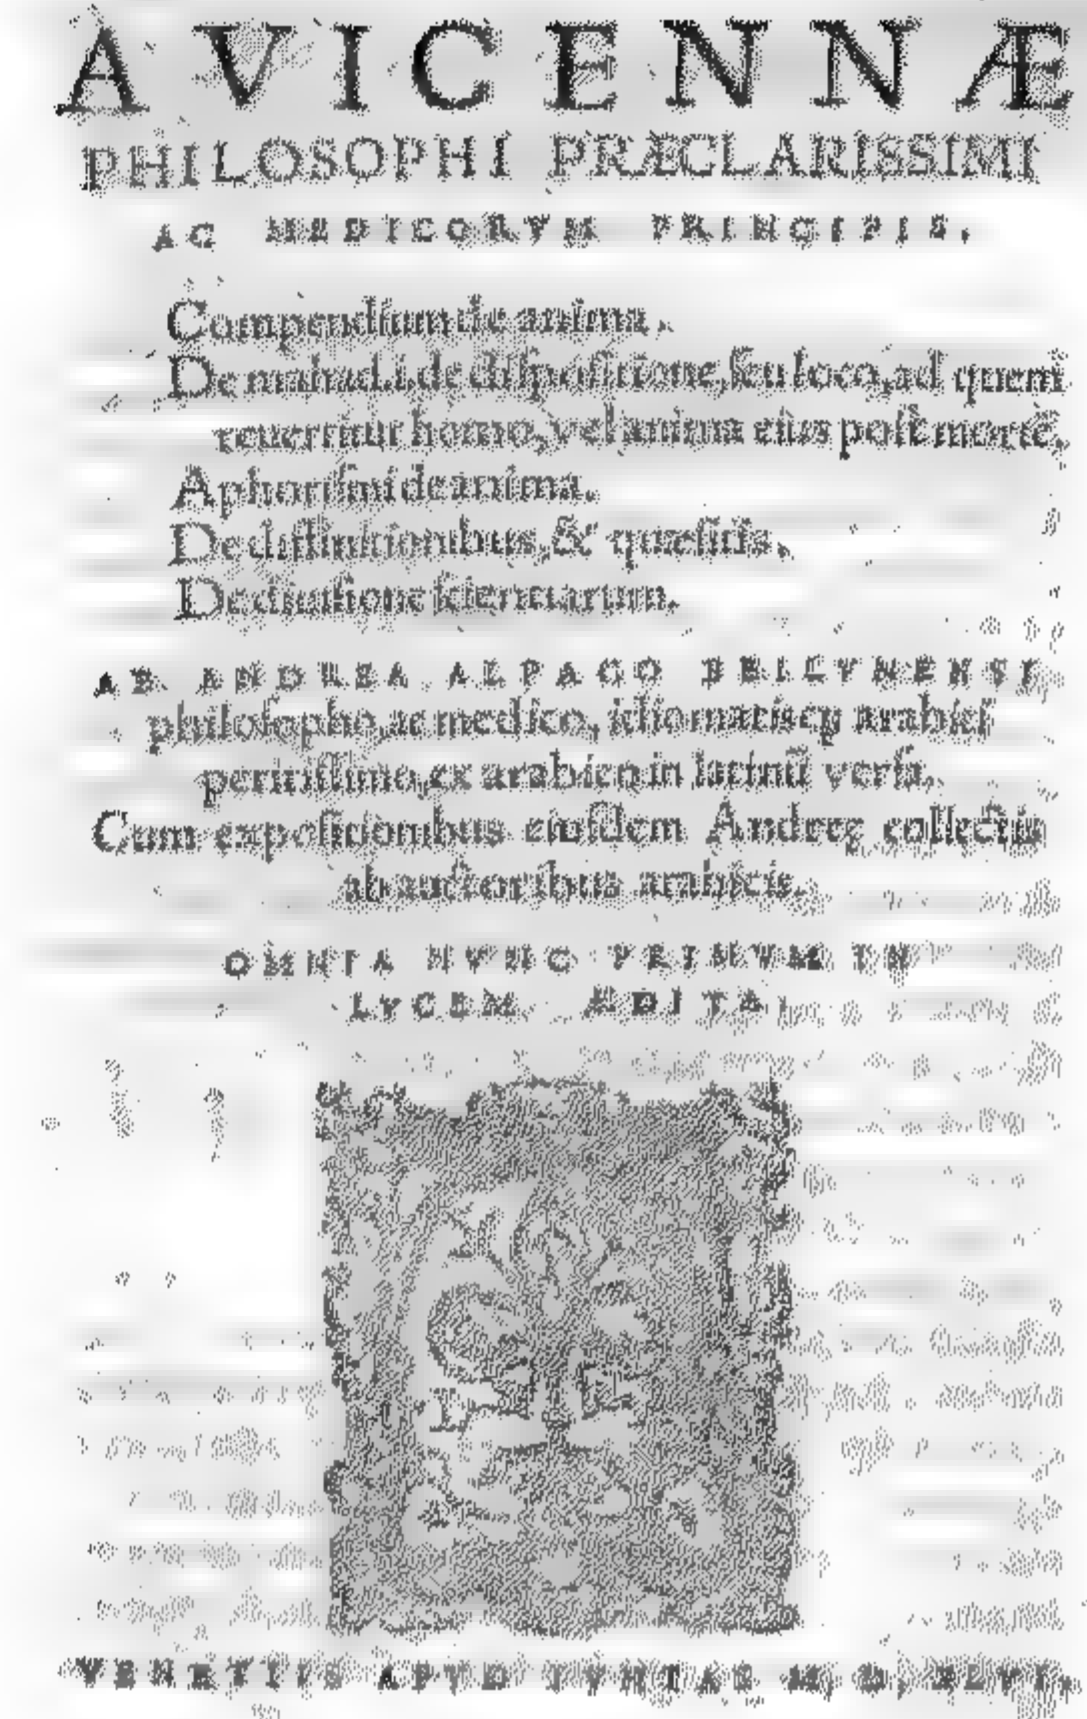 AVICENNÆ
PHILOSOPHI PRÆCLARISSIMI
AC MEDICORVM PRINCIPIS.
Compendium de anima.
De mahad.i.de dispositione, seu loco, ad quem
reuertitur homo, vel anima eius post morté,
Aphorismi de anima.
De diffinitionibus, & quæsitis.
De diuisione scientiarum.
AB ANDREA ALPAGO BELLVNENSI
philosopho, ac medico, idiomatisq; arabici
peritissimo, ex arabico in latinũ versa.
Cum expositionibus eiusdem Andreę collectis
ab auctoribus arabicis.
OMNIA NVNC PRIMVM IN
LVCEM ÆDITA.
VENETIIS APVD IVNTAS M, D, XLVI.